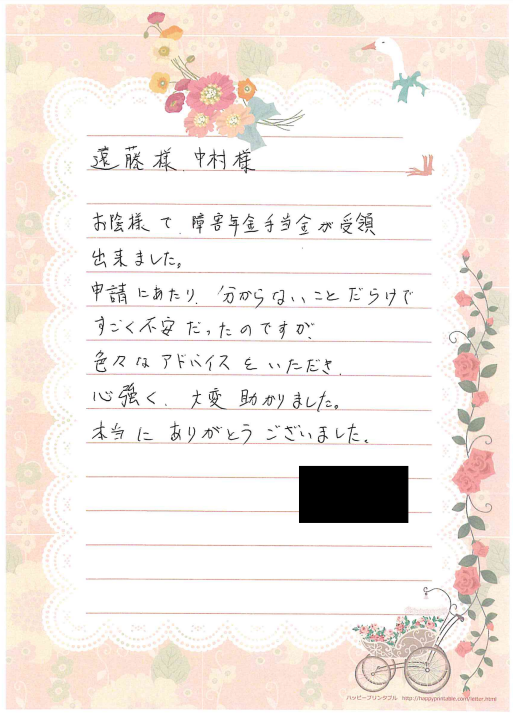 遠藤様、中村様
お陰様で、障害年金手当金が受領
出来ました。
申請にあたり、分からないことだらけで
すごく不安だったのですが、
色々なアドバイスをいただき、
心強く、大変助かりました。
本当にありがとうございました。
ハッピープリンタブル http://happyprintable.com/letter.html